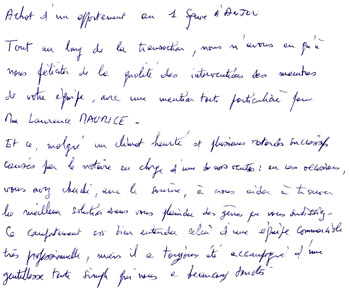 Achat d'un appartement au 1 Square d'ANJOU
Tout au long de la transaction, nous n'avons eu qu'à
nous féliciter de la qualité des interventions des membres
de votre équipe, avec une mention toute particulière pour
Mme Laurence MAURICE.
Et ce, malgré un climat heurté et plusieurs retards successifs
causés par le notaire en charge d'une vente : en ces occasions,
vous avez cherché, avec le sourire, à nous aider à trouver
les meilleures solutions sans vous plaindre des gênes que vous
Ce comportement est bien entendu celui d'une équipe commerciale
très professionnelle, mais il a toujours été accompagné d'une
gentillesse toute simple qui nous a beaucoup touchés